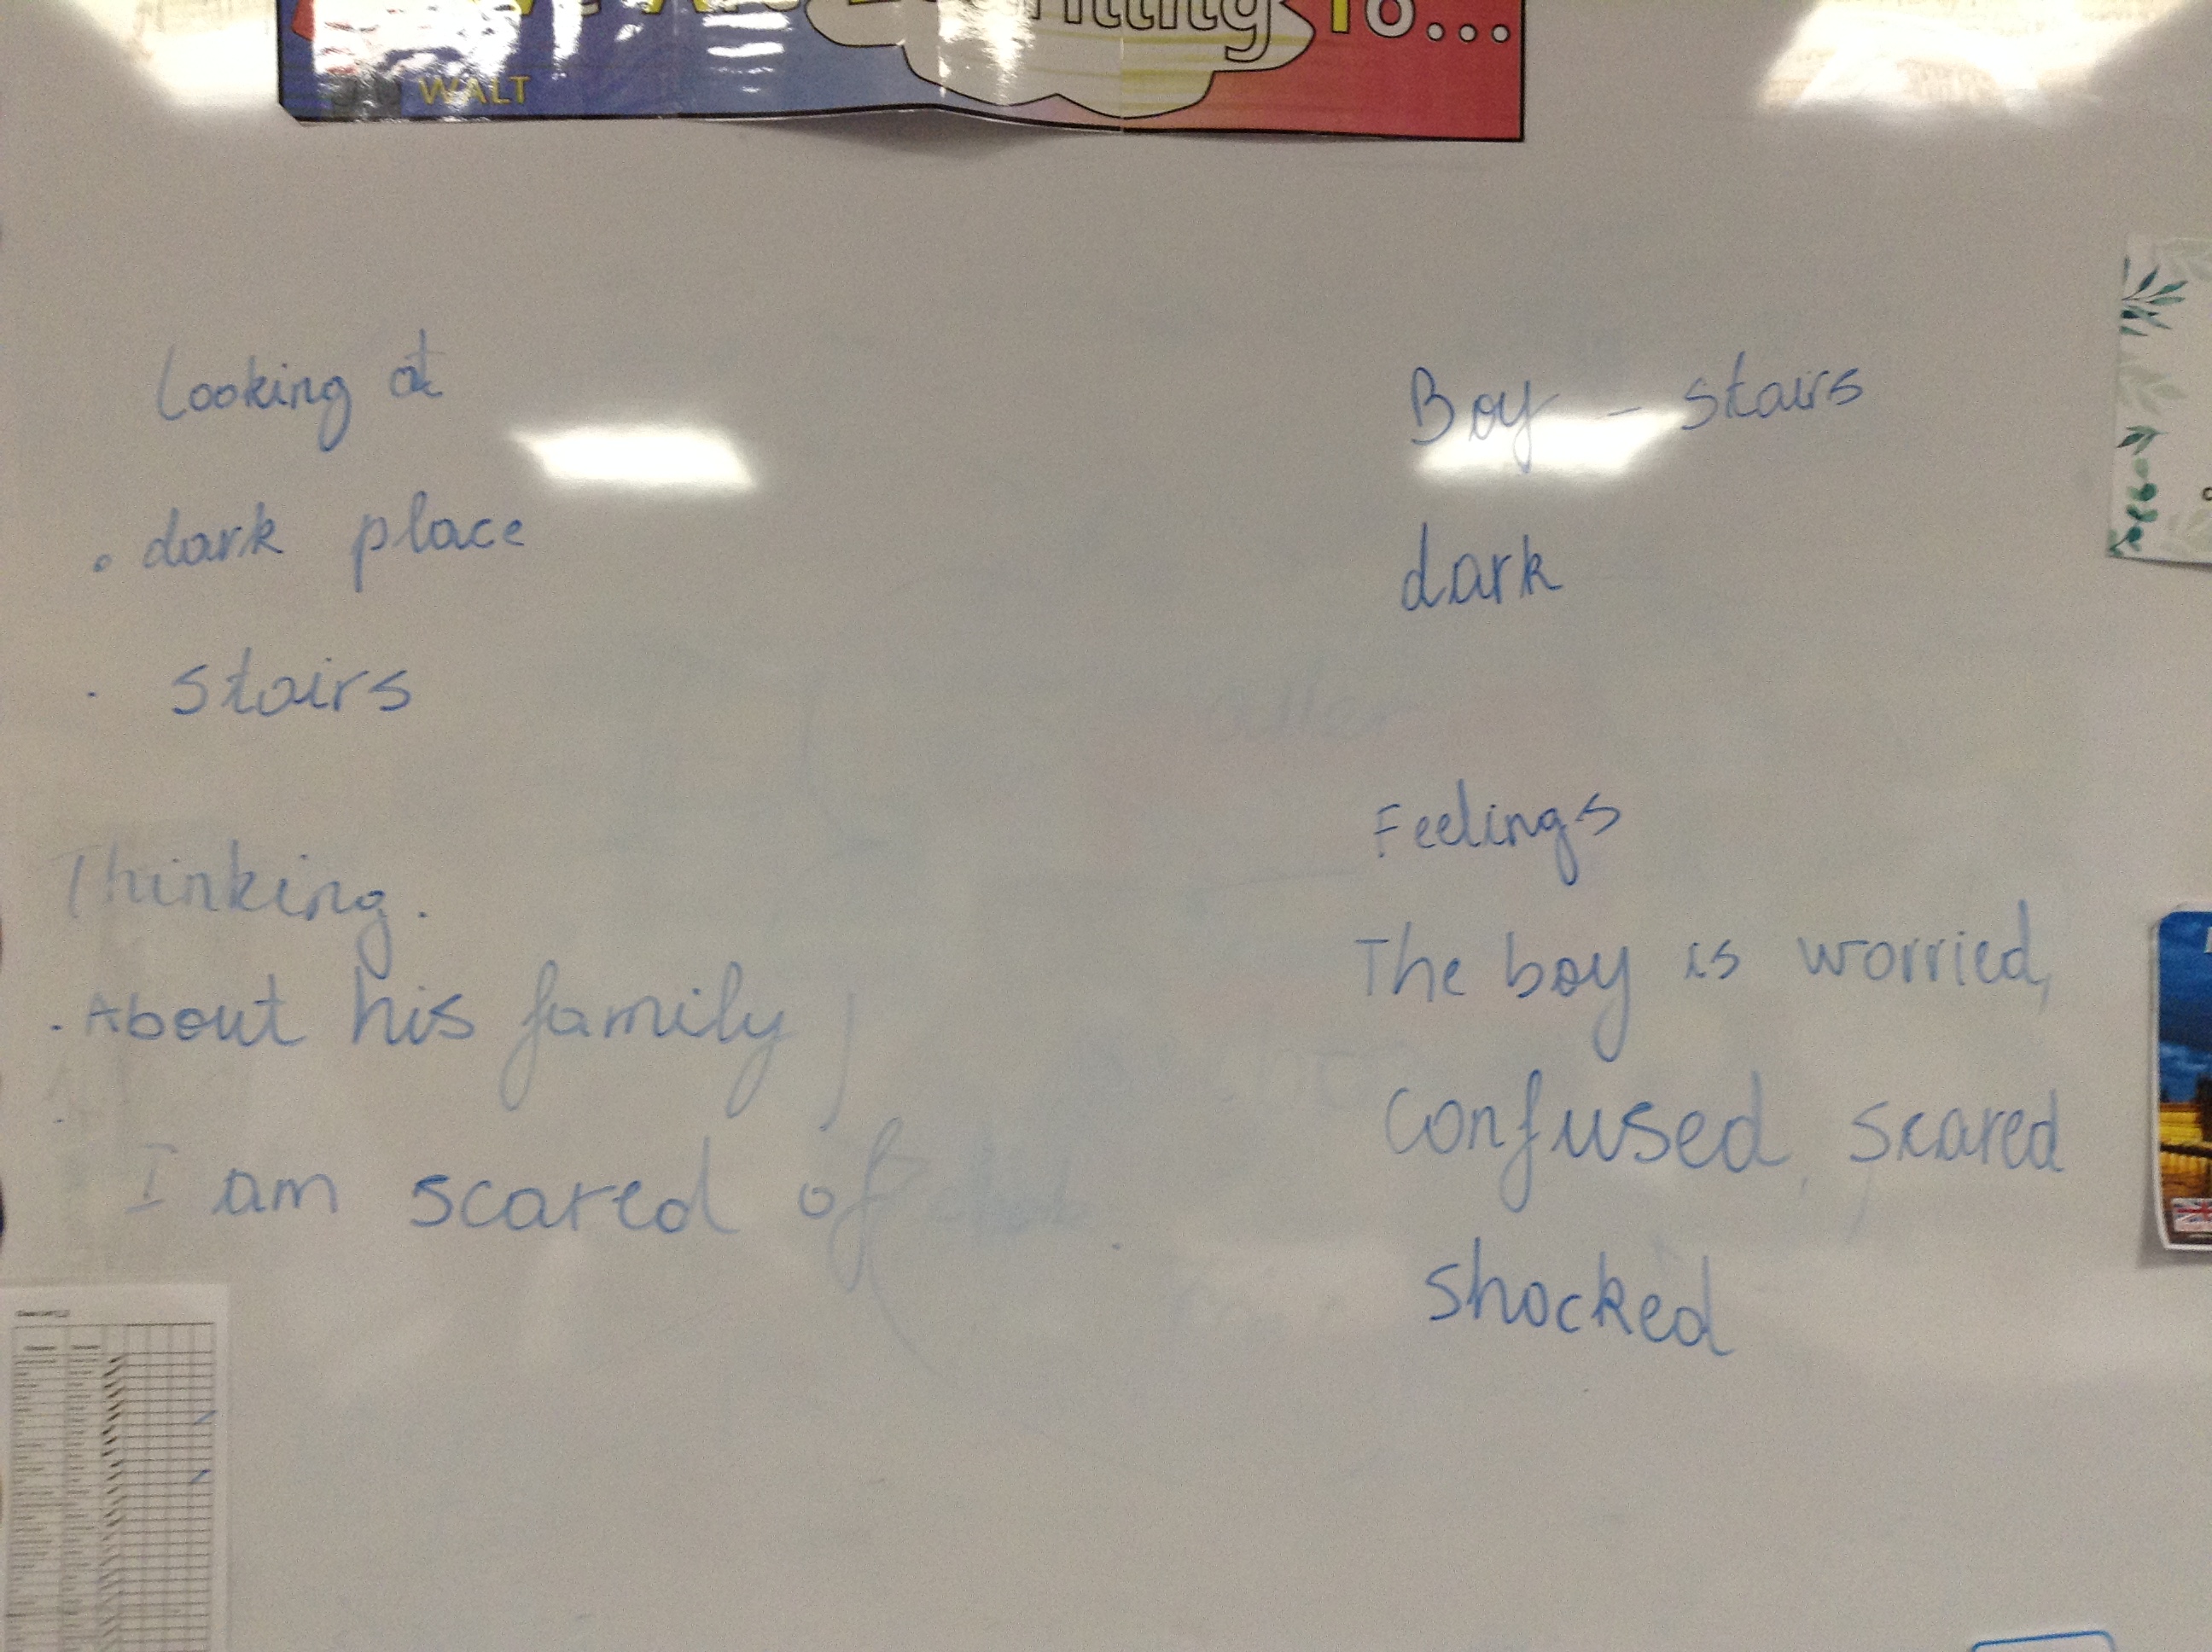 We Are Learning To...
WALT
Looking at
• dark place
· stairs
Thinking.
· About his family
I am scared of
Boy - stairs
dark
Feelings
The boy is worried,
confused, scared
shocked